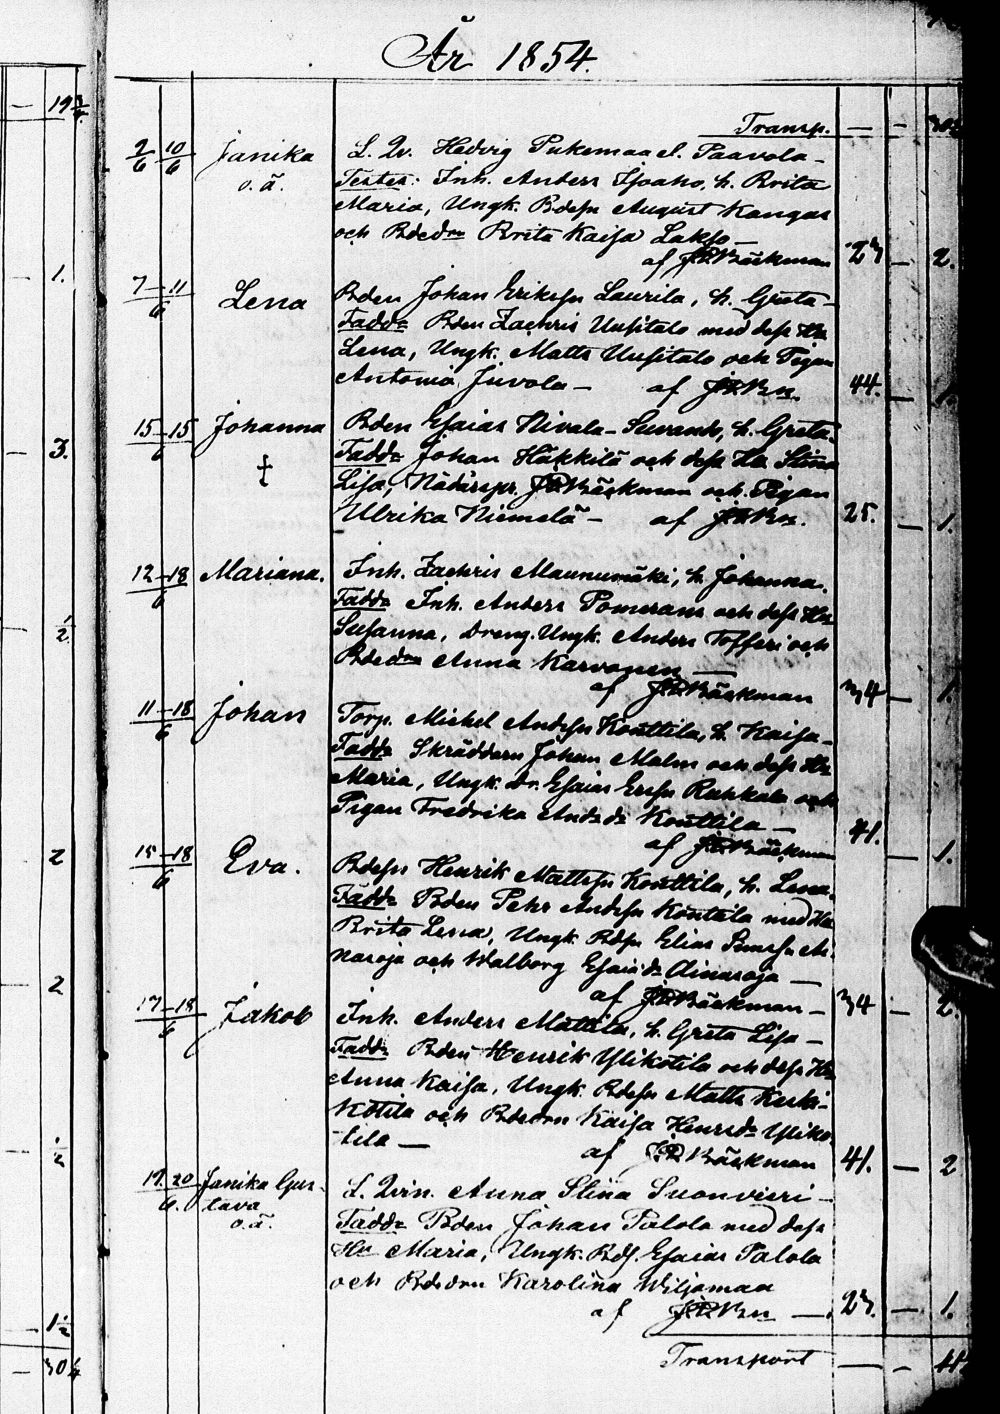 År 1854.
19 3/4.
Transp. — —
2/6 10/6 Janika L. Qv. Hedvig Pukemaa el. Paavola —
o. ä. Testes: Inh. Anders Isoaho, h. Brita
Maria, Ungk. Bdesn August Kangas
och Bdedrn Brita Kaisa Lakso —
af J.P. Bäckman 23 — 2.
1.
7—11/6 Lena Bden Johan Eriksn Laurila, h. Greta —
Fadd: Bden Zachris Uusitalo med dess Hu
Lena, Ungk. Matts Uusitalo och Pigan
Antonia Juvola — af J.P. Bn. 44. — 1.
15—15/6 Johanna Bden Esaias Nivala-Suvanto, h. Greta.
3. † Fadd: Johan Häkkilä och dess Hu Stina
Lisa, Nådårspr. J.P. Bäckman och Pigan
Ulrika Niemelä — af J.P. Bn. 25. — 1.
12—18/6 Mariana. Inh. Zachris Maunumäki, h. Johanna.
Fadd: Inh. Anders Pomerans och dess Hu
1/2. Susanna, Dreng. Ungk. Anders Tofferi och
Bdedrn Anna Karvonen —
af J.P. Bäckman 34 — 1.
11—18/6 Johan Torp. Michel Andersn Konttila, h. Kaisa —
Fadd: Skräddarn Johan Malm och dess Hu
Maria, Ungk. Dr. Esaias Erssn Ruhkala och
Pigan Fredrika Andsdr Konttila —
af J.P. Bäckman 41. — 1.
2
15—18/6 Eva. Bdesn Henrik Mattssn Konttila, h. Lena.
Fadd: Bden Pehr Andssn Konttila med Hu
Brita Lena, Ungk. Bdsn Elias Simssn Ai-
naroja och Walborg Esaiædr Ainaroja —
af J.P. Bäckman — 34 — 2.
2
17—18/6 Jakob Inh. Anders Mattila, h. Greta Lisa —
Fadd: Bden Henrik Ylikotila och dess Hu
Anna Kaisa, Ungk. Bdesn Matts Keski-
kotila och Bdedrn Kaisa Henrsdr Yliko-
tila — af J.P. Bäckman 41. — 2
1/2
19 20/6. Janika Gus- L. Qvin. Anna Stina Suonvieri —
tava Fadd: Bden Johan Palola med dess
o. ä. Hu Maria, Ungk. Bds. Esaias Palola
och Bdedrn Karolina Wiljamaa
af J.P. Bn — 23. — 1.
1 1/2
Transport — —